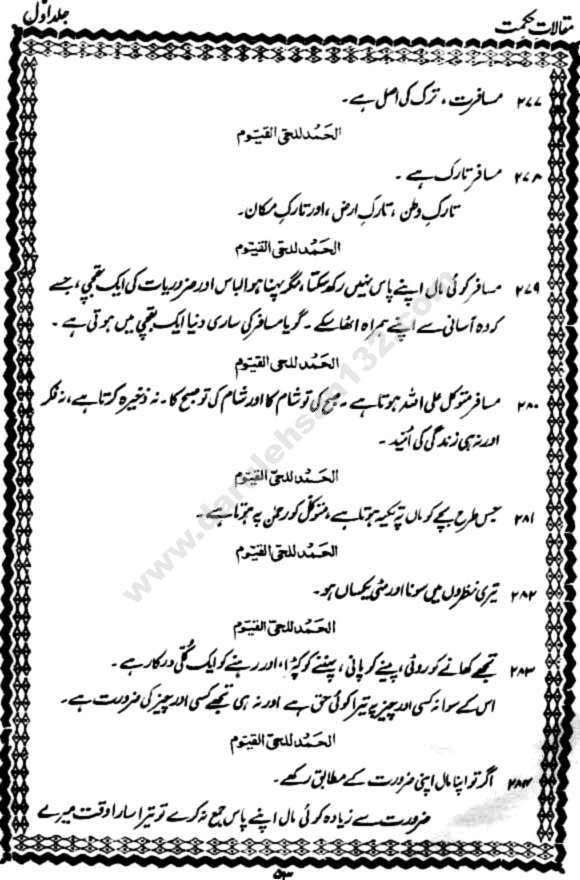 مقالاتِ حکمت
جلد اوّل
۲۷۷ مسافرت، ترک کی اصل ہے۔
الحَمْد للحیّ القیّوم
۲۷۸ مسافر تارک ہے۔
تارکِ وطن، تارکِ ارض، اور تارکِ مکان۔
الحَمْد للحیّ القیّوم
۲۷۹ مسافر کوئی مال اپنے پاس نہیں رکھ سکتا، مگر پہنا ہوا لباس اور ضروریات کی ایک بقچی، جسے
کہ وہ آسانی سے اپنے ہمراہ اٹھا سکے۔ گویا مسافر کی ساری دنیا ایک بقچی میں ہوتی ہے۔
الحَمْد للحیّ القیّوم
۲۸۰ مسافر متوکل علی اللہ ہوتا ہے۔ صبح کی تو شام کا اور شام کی تو صبح کا۔ نہ ذخیرہ کرتا ہے، نہ فکر
اور نہ ہی زندگی کی اُمید۔
الحَمْد للحیّ القیّوم
۲۸۱ جس طرح بچے کو ماں پہ تکیہ ہوتا ہے، متوکّل کو رحمٰن پہ ہوتا ہے۔
الحَمْد للحیّ القیّوم
۲۸۲ تیری نظروں میں سونا اور مٹی یکساں ہو۔
الحَمْد للحیّ القیّوم
۲۸۳ تجھے کھانے کو روٹی، پینے کو پانی، پہننے کو کپڑا، اور رہنے کو ایک کُلّی درکار ہے۔
اس کے سوا نہ کسی اور چیز پر تیرا کوئی حق ہے اور نہ ہی تجھے کسی اور چیز کی ضرورت ہے۔
الحَمْد للحیّ القیّوم
۲۸۴ اگر تو اپنا مال اپنی ضرورت کے مطابق رکھے۔
ضرورت سے زیادہ کوئی مال اپنے پاس جمع نہ کرے تو تیرا سارا وقت میرے
۵۳
www.darulehsan132.com